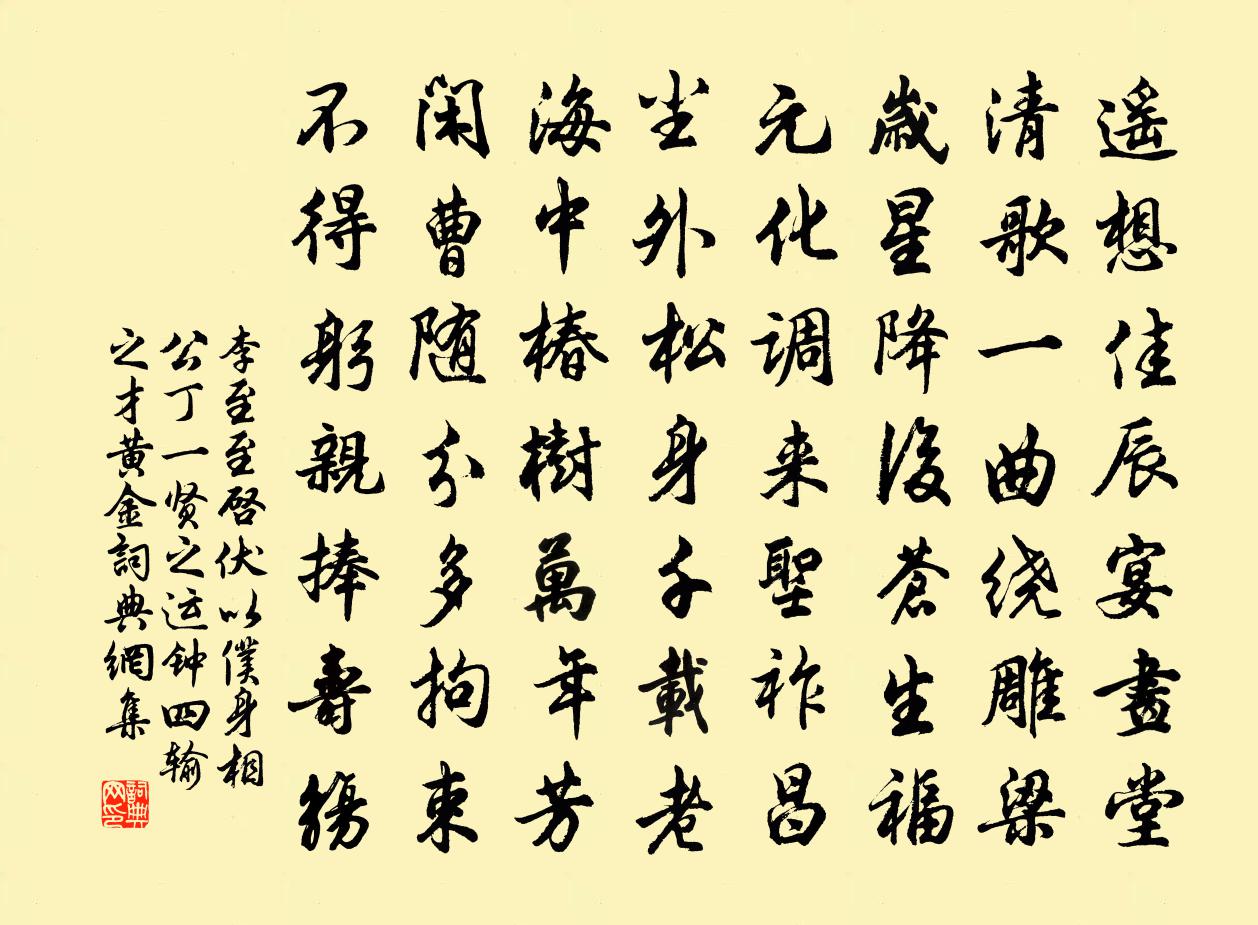 遥想佳辰宴畫堂
清歌一曲绕雕梁
歲星降後蒼生福
元化调来聖祚昌
坐外松身千載老
海中椿樹萬年芳
閑曹随分多拘束
不得躬親捧壽觴
李至至啓伏以僕身相
公丁一贤之运钟四输
之才黄金詞典網集
詞典网印